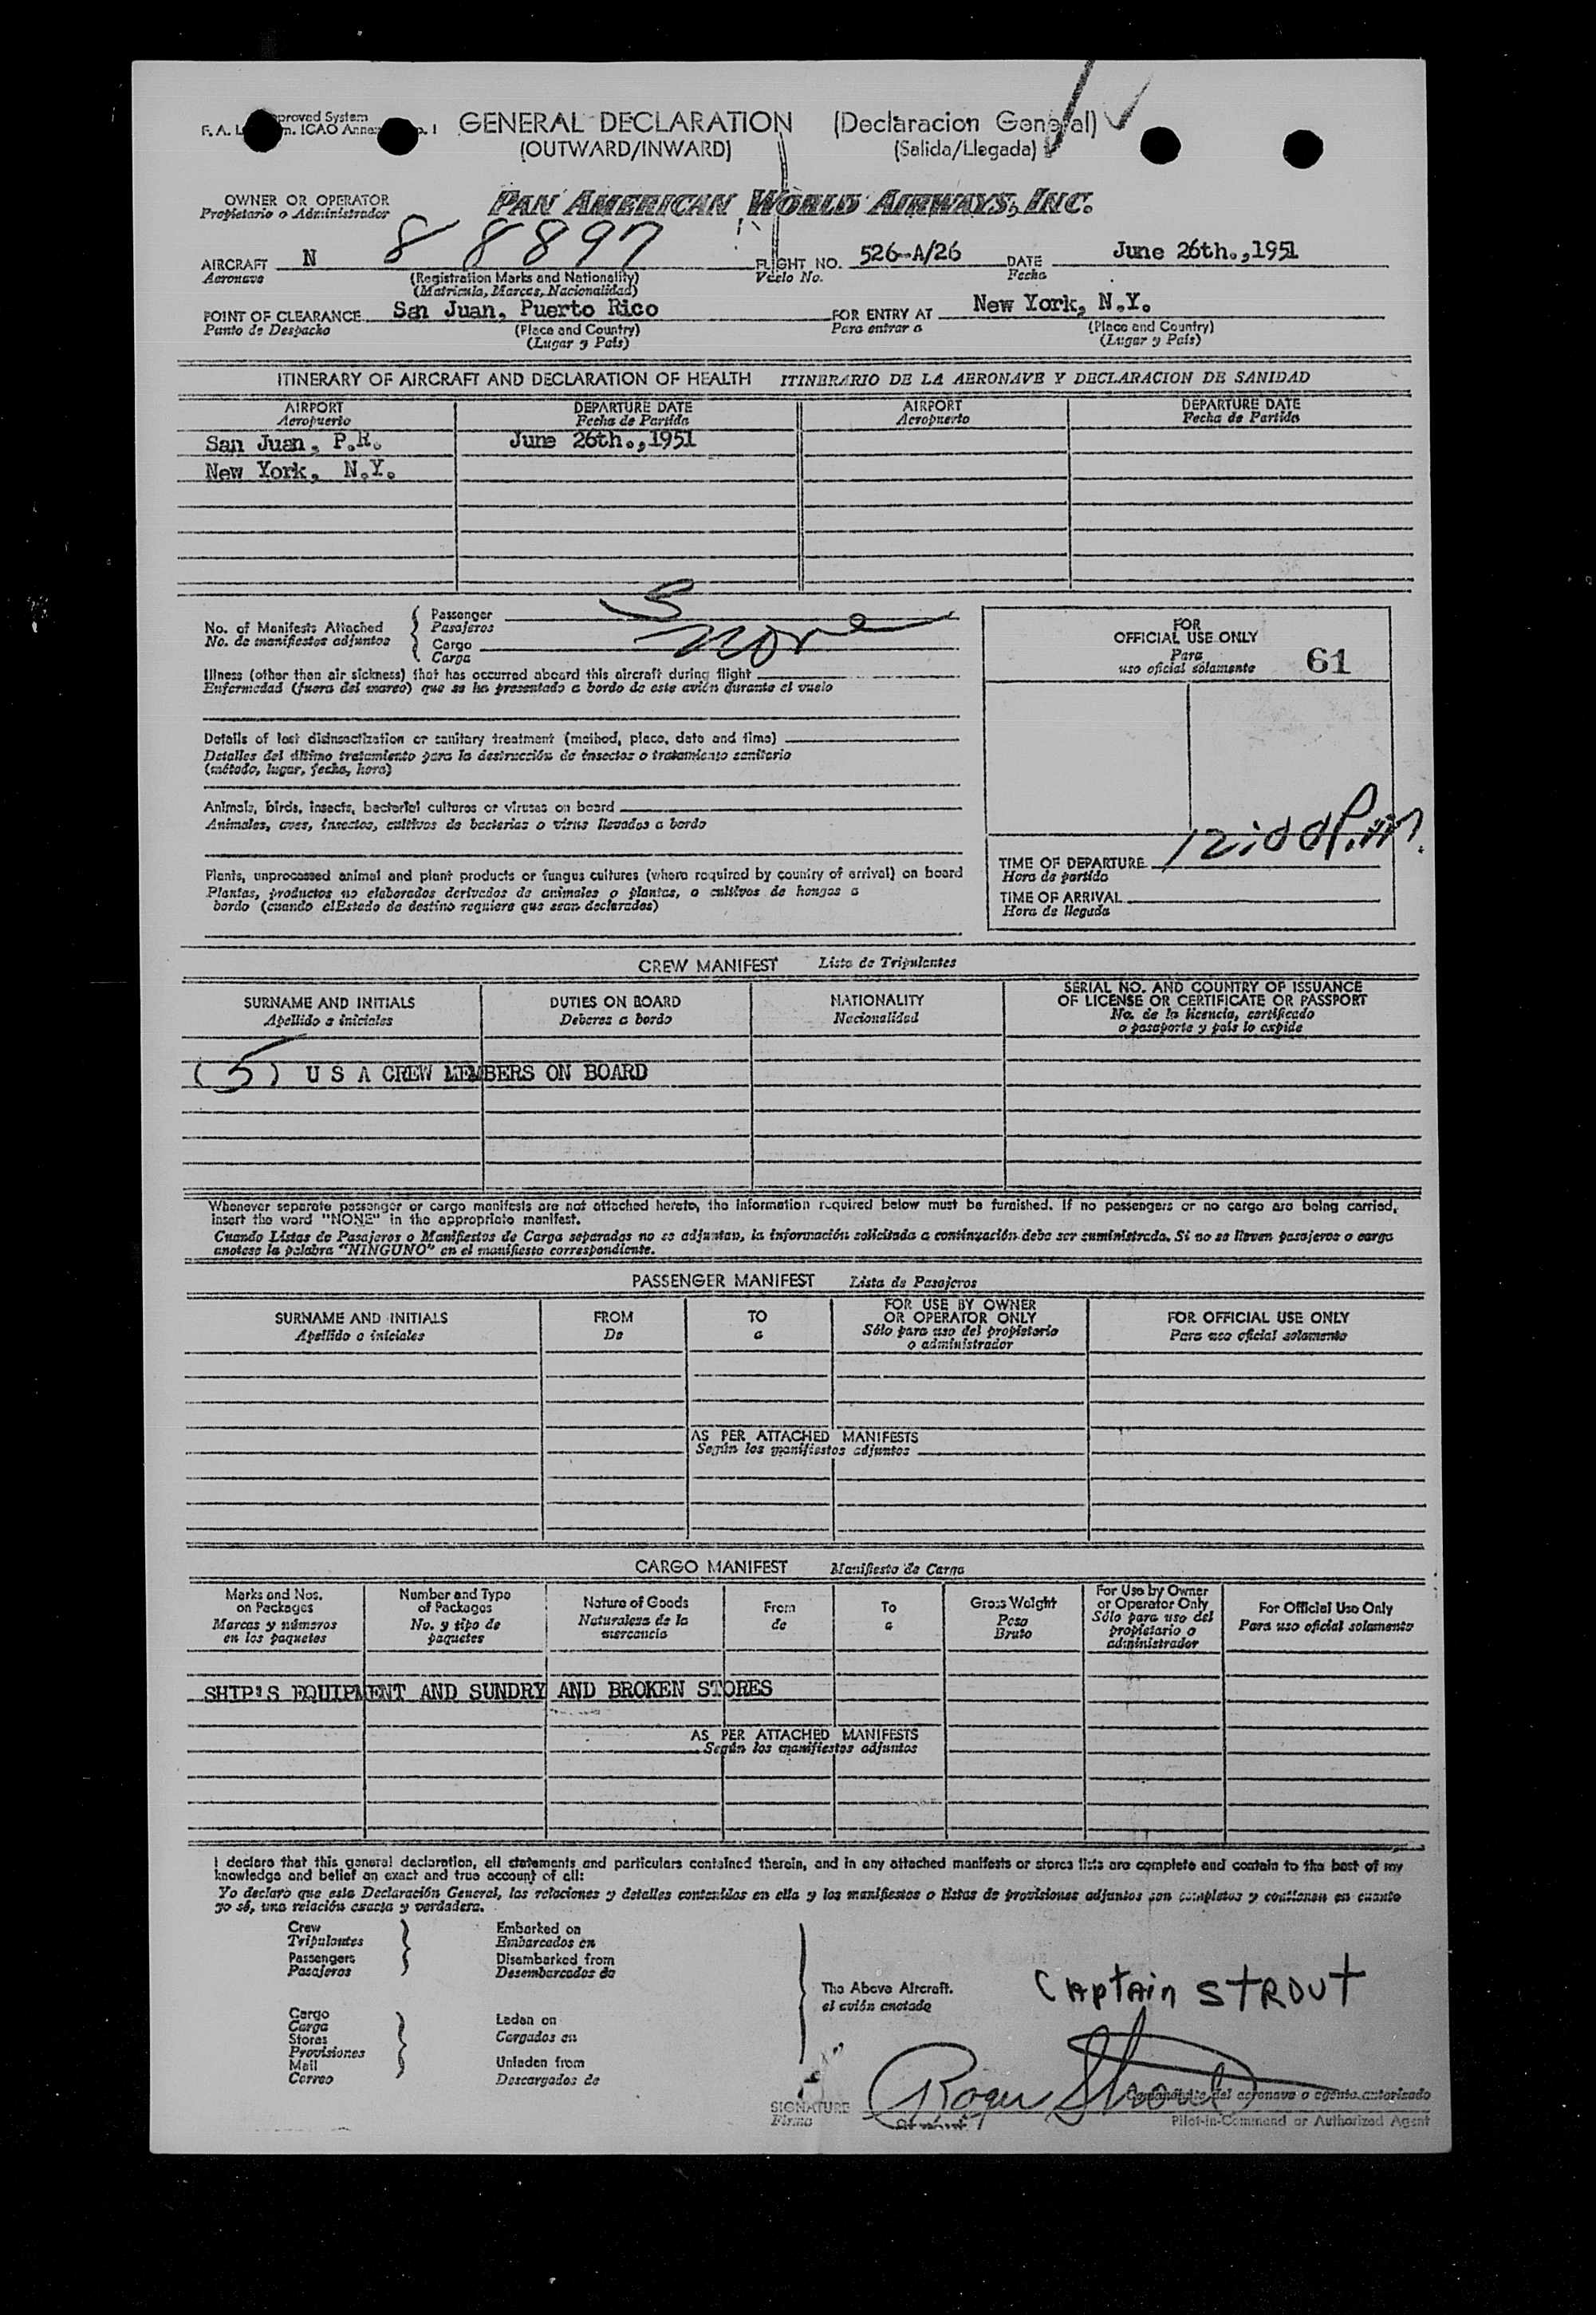 GENERAL DECLARATION (Declaracion General)
(OUTWARD/INWARD) (Salida/Llegada)
OWNER OR OPERATOR
Propietario o Administrador
PAN AMERICAN WORLD AIRWAYS, INC.
AIRCRAFT N 88897 FLIGHT NO. 526-A/26 DATE June 26th.,1951
Aeronave (Registration Marks and Nationality) Vuelo No. Fecha
(Matricula, Marcas, Nacionalidad)
POINT OF CLEARANCE San Juan, Puerto Rico FOR ENTRY AT New York, N.Y.
Punto de Despacho (Place and Country) Para entrar a (Place and Country)
(Lugar y País) (Lugar y País)
ITINERARY OF AIRCRAFT AND DECLARATION OF HEALTH ITINERARIO DE LA AERONAVE Y DECLARACION DE SANIDAD
AIRPORT DEPARTURE DATE AIRPORT DEPARTURE DATE
Aeropuerto Fecha de Partida Aeropuerto Fecha de Partida
San Juan, P.R. June 26th.,1951
New York, N.Y.
No. of Manifests Attached
No. de manifiestos adjuntos
Passenger 5
Pasajeros
Cargo none
Carga
Illness (other than air sickness) that has occurred aboard this aircraft during flight
Enfermedad (fuera del mareo) que se ha presentado a bordo de este avión durante el vuelo
Details of last disinsectization or sanitary treatment (method, place, date and time)
Detalles del último tratamiento para la destrucción de insectos o tratamiento sanitario
(método, lugar, fecha, hora)
Animals, birds, insects, bacterial cultures or viruses on board
Animales, aves, insectos, cultivos de bacterias o virus llevados a bordo
Plants, unprocessed animal and plant products or fungus cultures (where required by country of arrival) on board
Plantas, productos no elaborados derivados de animales o plantas, o cultivos de hongos a
bordo (cuando elEstado de destino requiere que sean declarados)
FOR
OFFICIAL USE ONLY
Para
uso oficial solamente
61
TIME OF DEPARTURE 12:00 P.M.
Hora de partida
TIME OF ARRIVAL
Hora de llegada
CREW MANIFEST Lista de Tripulantes
SURNAME AND INITIALS DUTIES ON BOARD NATIONALITY SERIAL NO. AND COUNTRY OF ISSUANCE
OF LICENSE OR CERTIFICATE OR PASSPORT
Apellido e iniciales Deberes a bordo Nacionalidad No. de la licencia, certificado
o pasaporte y país lo expide
(5) U S A CREW MEMBERS ON BOARD
Whenever separate passenger or cargo manifests are not attached hereto, the information required below must be furnished. If no passengers or no cargo are being carried,
insert the word "NONE" in the appropriate manifest.
Cuando Listas de Pasajeros o Manifiestos de Carga separados no se adjuntan, la información solicitada a continuación debe ser suministrada. Si no se lleven pasajeros o carga
anotese la palabra "NINGUNO" en el manifiesto correspondiente.
PASSENGER MANIFEST Lista de Pasajeros
SURNAME AND INITIALS FROM TO FOR USE BY OWNER
OR OPERATOR ONLY FOR OFFICIAL USE ONLY
Apellido o iniciales De a Sólo para uso del propietario
o administrador Para uso oficial solamente
AS PER ATTACHED MANIFESTS
Según los manifiestos adjuntos
CARGO MANIFEST Manifiesto de Carga
Marks and Nos.
on Packages
Marcas y números
en los paquetes
Number and Type
of Packages
No. y tipo de
paquetes
Nature of Goods
Naturaleza de la
mercancía
From
de
To
a
Gross Weight
Peso
Bruto
For Use by Owner
or Operator Only
Sólo para uso del
propietario o
administrador
For Official Use Only
Para uso oficial solamente
SHIP'S EQUIPMENT AND SUNDRY AND BROKEN STORES
AS PER ATTACHED MANIFESTS
Según los manifiestos adjuntos
I declare that this general declaration, all statements and particulars contained therein, and in any attached manifests or stores lists are complete and contain to the best of my
knowledge and belief an exact and true account of all:
Yo declaro que esta Declaración General, las relaciones y detalles contenidos en ella y los manifiestos o listas de provisiones adjuntos son completos y contienen en cuanto
yo sé, una relación exacta y verdadera.
Crew
Tripulantes
Passengers
Pasajeros
Embarked on
Embarcados en
Disembarked from
Desembarcados de
Cargo
Carga
Stores
Provisiones
Mail
Correo
Laden on
Cargados en
Unladen from
Descargados de
The Above Aircraft.
el avión anotado
CAptAin StROUt
Roger Strout
SIGNATURE
Firma
Comandante del aeronave o agente autorizado
Pilot-in-Command or Authorized Agent